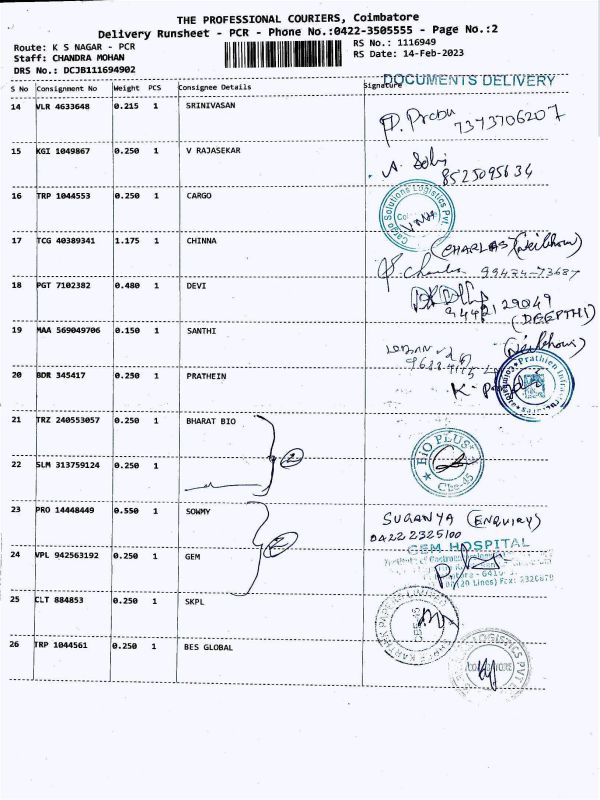 THE PROFESSIONAL COURIERS, Coimbatore
Delivery Runsheet - PCR - Phone No.:0422-3505555 - Page No.:2
Route: K S NAGAR - PCR
RS No.: 1116949
Staff: CHANDRA MOHAN
RS Date: 14-Feb-2023
DRS No.: DCJB111694902
DOCUMENTS DELIVERY
S No Consignment No Weight PCS Consignee Details Signature
14 VLR 4633648 0.215 1 SRINIVASAN
P. Prabu
7373706207
15 KGI 1049867 0.250 1 V RAJASEKAR
A. Sobi
8525095634
16 TRP 1044553 0.250 1 CARGO
Cargo Solutions Logistics Pvt.
17 TCG 40389341 1.175 1 CHINNA
(CHARLAS)
99434-73687
18 PGT 7102382 0.480 1 DEVI
9442129049
(DEEPTHI)
19 MAA 569049706 0.150 1 SANTHI
20 BDR 345417 0.250 1 PRATHEIN
Prathien Infra
Coimbatore
K.
21 TRZ 240553057 0.250 1 BHARAT BIO
2
BIO PLUS
Cbe-45
22 SLM 313759124 0.250 1
23 PRO 14448449 0.550 1 SOWMY
2
SUGANYA (ENQUIRY)
0422 2325100
24 VPL 942563192 0.250 1 GEM
GEM HOSPITAL
(20 Lines) Fax:
25 CLT 884853 0.250 1 SKPL
SHREE KARTHIK PAPERS LIMITED
CBE-45
26 TRP 1044561 0.250 1 BES GLOBAL
LOGISTICS PVT